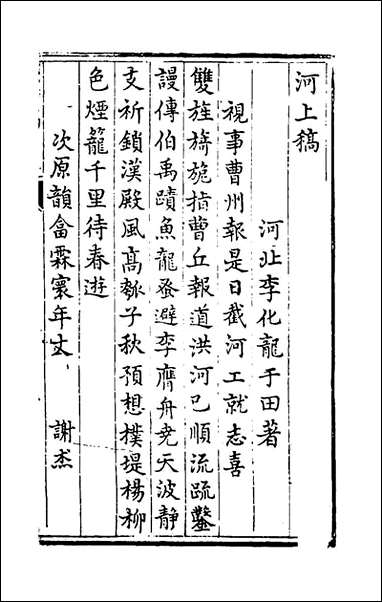 河上稿
河北李化龍于田著
視事曹州報是日截河工就志喜
雙旌旖旎指曹丘報道洪河已順流疏鑿
謾傳伯禹蹟魚龍蚤避李膺舟堯天波靜
支祈鎖漢殿風高瓠子秋預想撲堤楊柳
色煙籠千里待春遊
次原韻畣霖寰年丈 謝杰